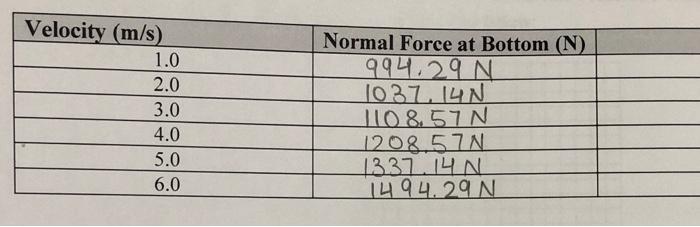 Velocity (m/s) Normal Force at Bottom (N)
1.0 994.29 N
2.0 1037.14N
3.0 1108.57 N
4.0 1208.57N
5.0 1337.14 N
6.0 1494.29 N